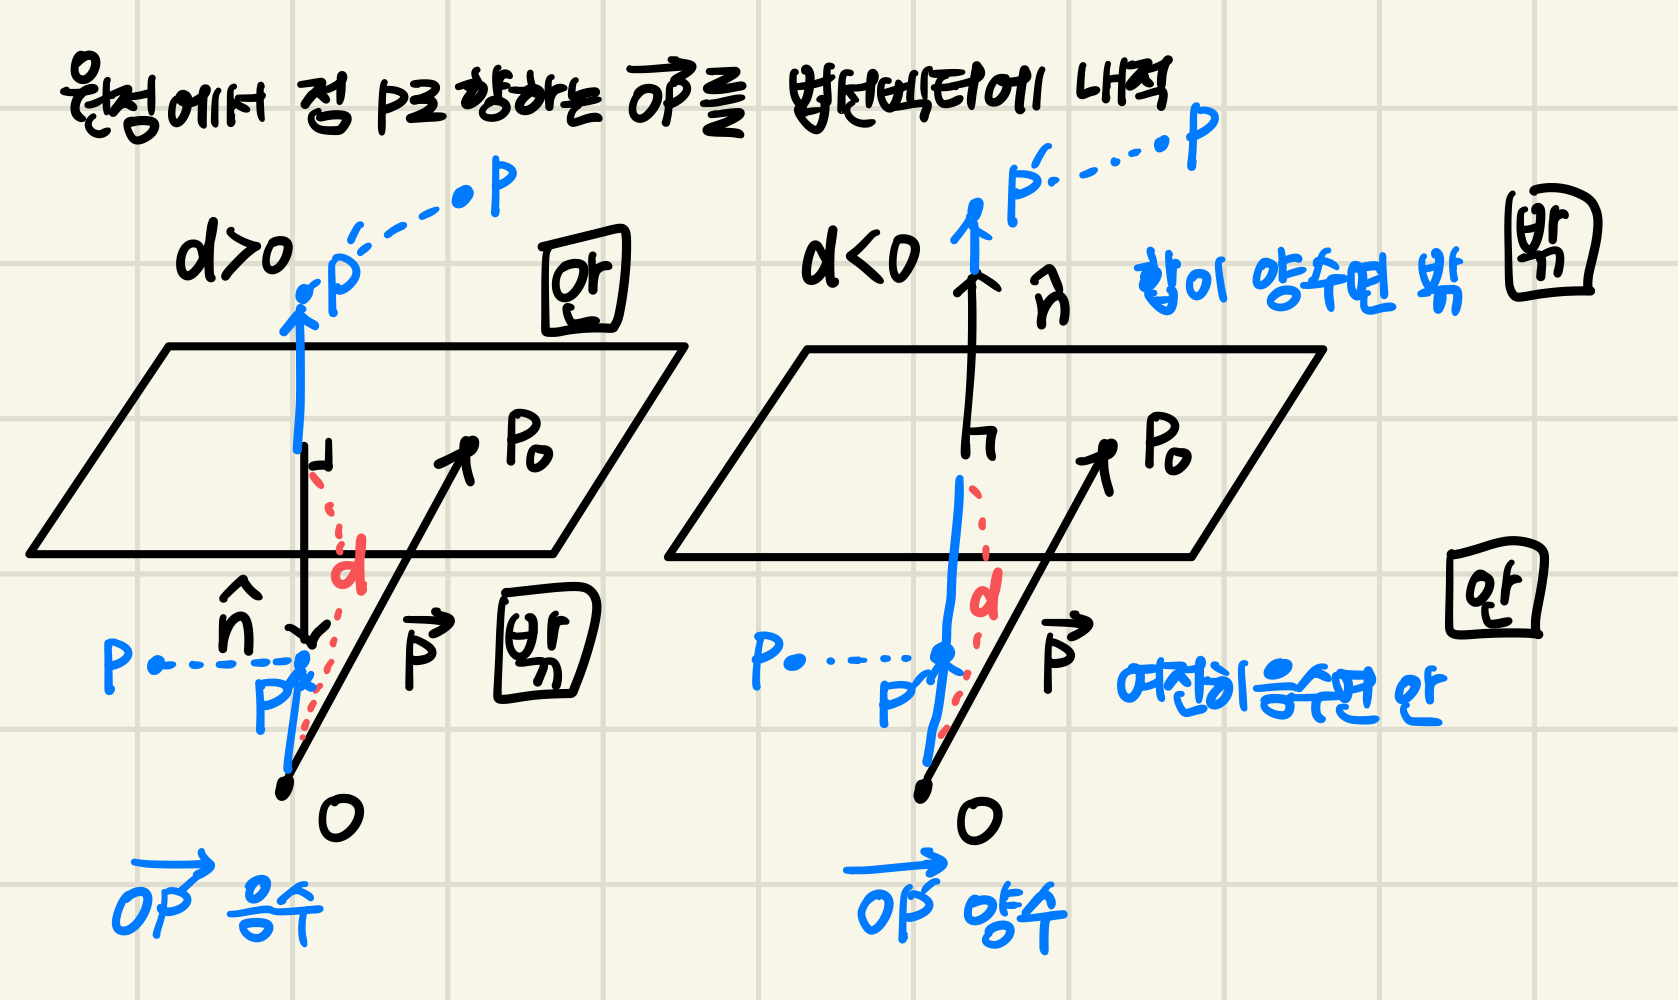 원점에서 점 P로 향하는 OP를 법선벡터에 내적
d>0
P
P'
안
d
P₀
n̂
P
밖
P
P'
O
OP' 음수
d<0
P'
P
n̂
합이 양수면 밖
밖
P₀
d
안
P
P
P'
여전히 음수면 안
O
OP' 양수